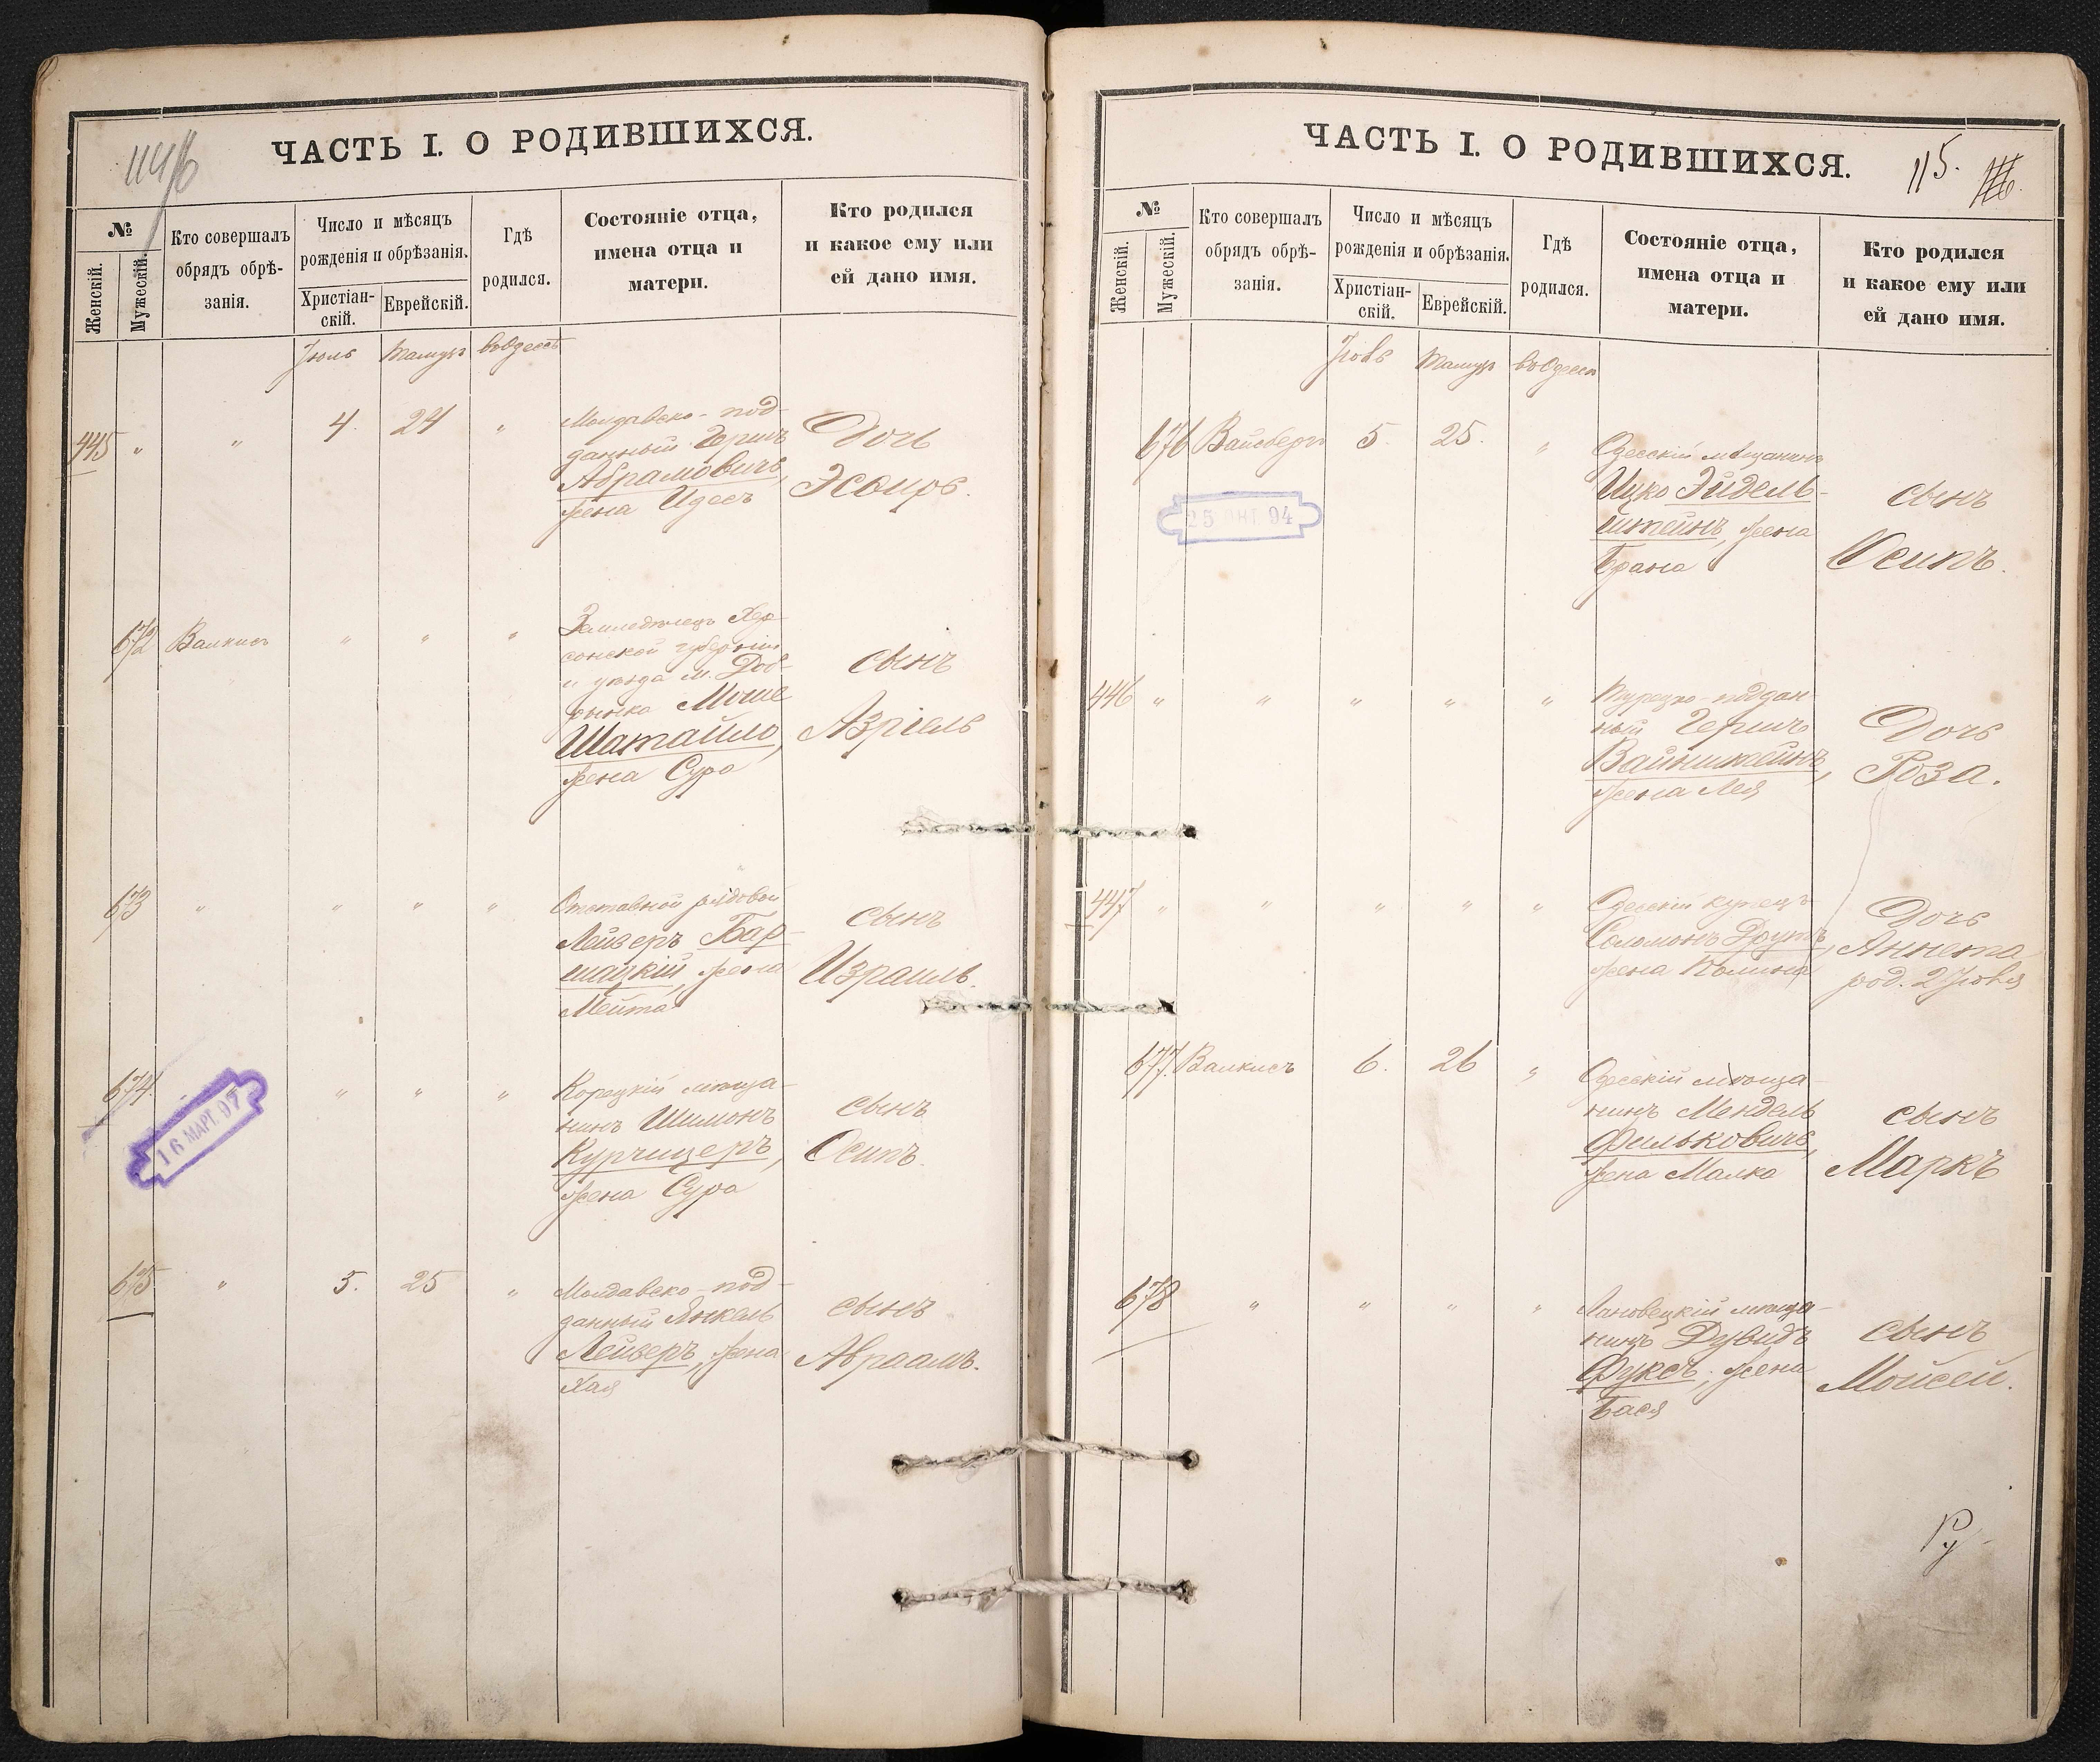 ЧАСТЬ I. О РОДИВШИХСЯ.
№
Женскій.
Мужескій.
Кто совершалъ
обрядъ обрѣ-
занія.
Число и мѣсяцъ
рожденія и обрѣзанія.
Христіан-
скій.
Еврейскій.
Гдѣ
родился.
Состояніе отца,
имена отца и
матери.
Кто родился
и какое ему или
ей дано имя.
Іюль Тамузъ въ Одессѣ
445 " " 4. 24 "
Молдавско-под-
данный Гершъ
Абрамовичъ,
жена Идесъ
Дочь
Эсѳирь.
672 Валкисъ " " "
Земледѣлецъ Хер-
сонской губерніи
и уѣзда м. Доб-
рынка Моше
Шатайло,
жена Сура
сынъ
Азріель
673 " " " "
Отставной рядовой
Лейзеръ Бар-
шацкій, жена
Мейта
сынъ
Израиль.
674. " " " "
16 МАРТ. 97
Корецкій мѣща-
нинъ Шимонъ
Курчицеръ,
жена Сура
сынъ
Осипъ.
675 " 5. 25 "
Молдавско-под-
данный Янкель
Лейзеръ, жена
Хая
сынъ
Авраамъ.
ЧАСТЬ I. О РОДИВШИХСЯ.
115.
№
Женскій.
Мужескій.
Кто совершалъ
обрядъ обрѣ-
занія.
Число и мѣсяцъ
рожденія и обрѣзанія.
Христіан-
скій.
Еврейскій.
Гдѣ
родился.
Состояніе отца,
имена отца и
матери.
Кто родился
и какое ему или
ей дано имя.
Іюль Тамузъ въ Одессѣ
676 Вайсбергъ 5. 25. "
25 ОКТ. 94
Одесскій мѣщанинъ
Ицко Эйдель-
штейнъ, жена
Брана
сынъ
Осипъ.
446 " " " " "
Турецко-поддан-
ный Гершъ
Вайнштейнъ,
жена Лея
Дочь
Роза.
447 " " " " "
Одесскій купецъ
Соломонъ Друтъ,
жена
Дочь
Аннета
род. 2 Іюля
677. Валкисъ 6. 26 "
Одесскій мѣща-
нинъ Мендель
Фильковичъ,
жена Малка
сынъ
Маркъ
678 " " " "
Лановецкій мѣща-
нинъ Дувидъ
Фуксъ, жена
Бася
сынъ
Мойсей.